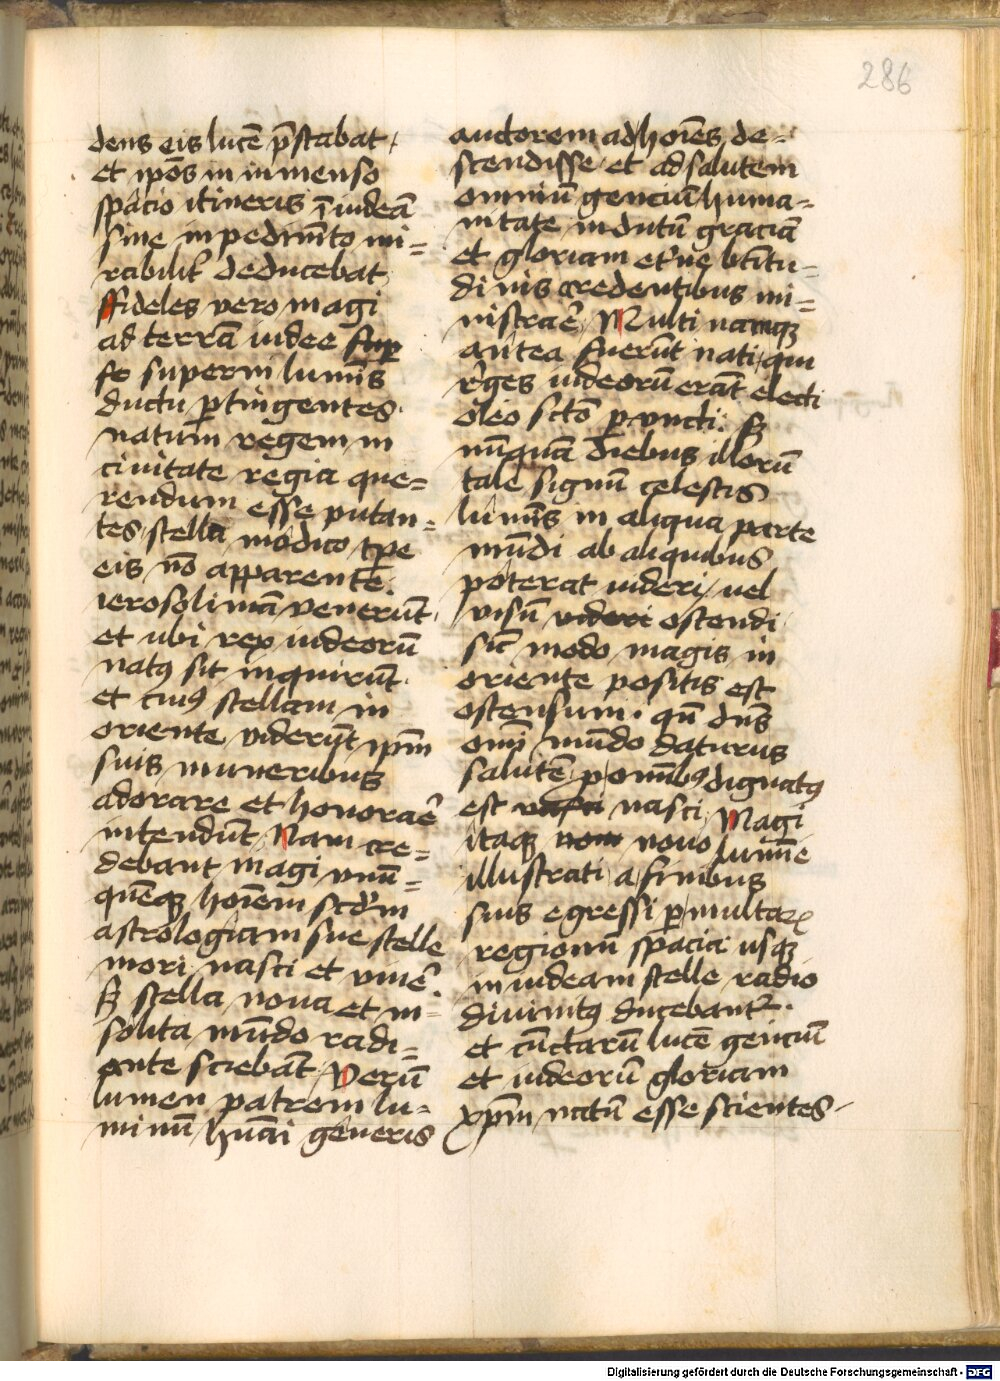 286
dens eis lucē p̄stabat
et ip̄os in inmenso
spacio itineris ī iudeā
sine inpedimēto mi=
rabilit̄ deducebat
ffideles vero magi
ad terrā iudee sup
se superni lumīs
ductu ꝑtingentes
natum regem in
ciuitate regia que=
rendum esse putan=
tes stella modico tp̄e
eis nō apparente.
ierosolimā venerūt
et ubi rex iudeorū
natꝰ sit inquirūt
et cuiꝰ stellam in
oriente viderūt ip̄m
suis muneribus
adorare et honorar̄e
intendūt Nam cre=
debant magi vnū=
quēqꝫ hoīem scd̄m
astrologiam sue stelle
mori nasci et viuer̄e
sꝫ stella noua et in=
solita mūdo radi=
ante sciebāt Verū
lumen patrem lu=
minū hūai generis
auctorem ad hoīes de=
scendisse et ad salutem
omniū genciū huma=
nitate indutū graciā
et gloriam et̄ne btītu=
dinis credentibus mi=
nistrar̄e Multi namqꝫ
antea fuerūt nati qui
reges iudeorū erāt electi
oleo scto ꝑuncti. sꝫ
nūquā diebus illorū
tale signū celestis
lumīs in aliqua parte
mūdi ab aliquibus
poterat uideri uel
visū videri ostendi
sic̄ modo magis in
oriente positis est
ostensum. qn̄ dn̄s
omī mūdo daturus
salutē ꝑ omībꝰ dignatꝰ
est nasci nasci Magi
itaqꝫ nom nouo lumīe
illustrati a finibus
suis egressi ꝑ multaꝝ
regionū spacia usqꝫ
in iudeam stelle radio
diuinitꝰ ducebant̄.
et cūctarū lucē genciū
et iudeorū gloriam
xp̄m natū esse scientes
Digitalisierung gefördert durch die Deutsche Forschungsgemeinschaft - DFG